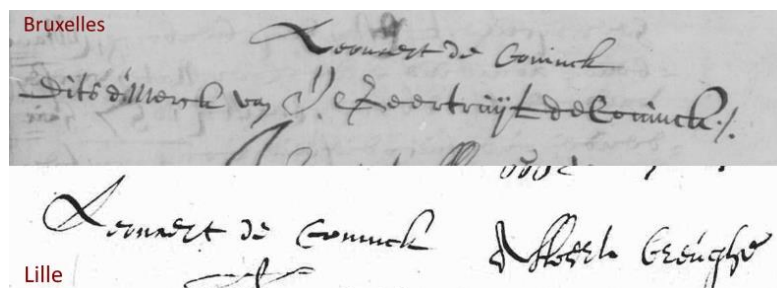 Bruxelles
Lenaert de Coninck
Dit es d'Merck van Jo. Geertruijt de Coninck ./.
Lenaert de Coninck
Lille